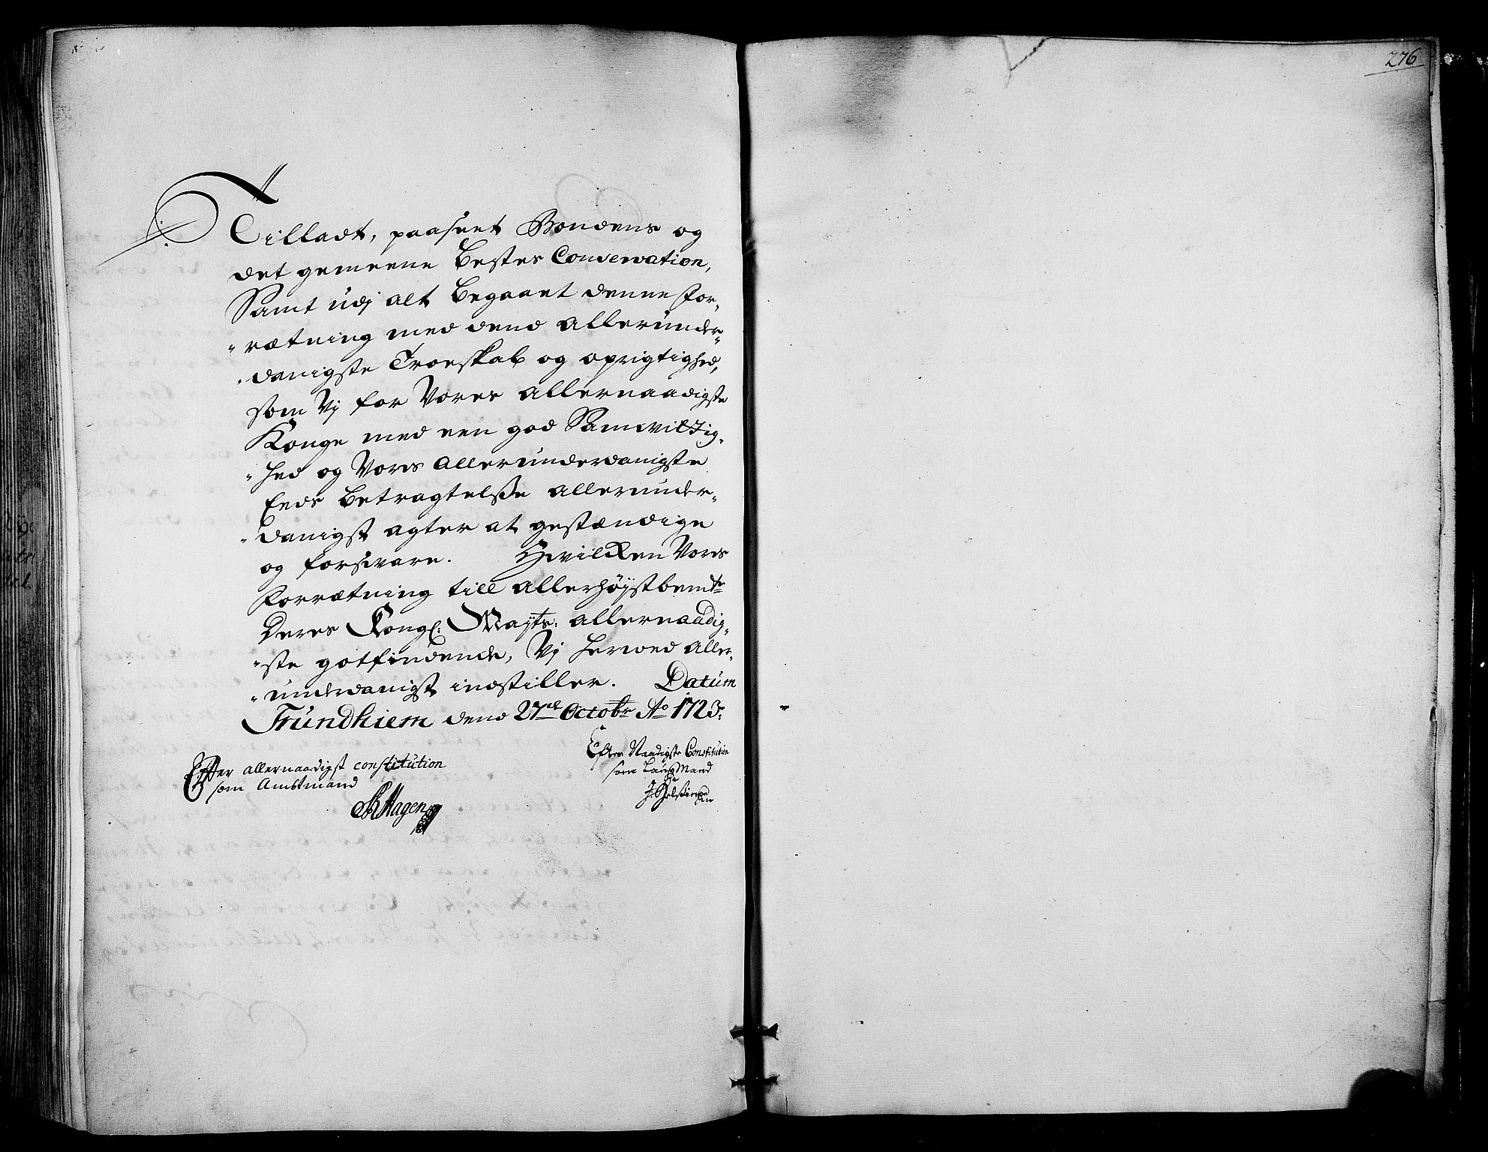 276
Tilladt, paaseet Bondens og
det gemeene Bestes Conservation,
Samt udj alt begaaet denne for-
rætning med dend allerunder-
danigste Troeskab og oprigtighed,
som Vj for Vores allernaadigste
Konge med een god Samvittig-
hed og Vores allerunderdanigste
Eeds betragtelsse allerunder-
danigst agter at gestændige
og forsvare. Hvilken Vores
forrætning till allerhøystbemte
Deres Kongl. Mayts. allernaadig-
ste gotfindende, Vj herved aller-
underdanigst indstiller. Datum
Trundhiem dend 27de Octobr Ao 1723.
Efter allernaadigst constitution
som Ambtmand
Hagen
Efter Naadigste Constitution
som Laugmand